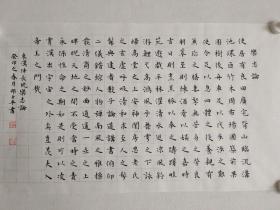 樂志論
使居有良田廣宅背山臨流溝
池環匝竹木周布場圃築前果
園樹後舟車足以代步涉之難
使令足以息四體之役養親有
兼珍之膳妻孥無苦身之勞良
朋萃止則陳酒肴以娛之嘉時
吉日則烹羔豚以奉之躊躇畦
苑遊戲平林濯清水追涼風釣
游鯉弋高鴻風於舞雩之下詠
歸高堂之上安神閨房思老氏
之玄虛呼吸清和求至人之彷
彿與達者數子論道講書俯仰
二儀錯綜人物彈南風之雅操
發清商之妙曲逍遙一世之上
睥睨天地之間不受當時之責
永保性命之期如是則可以凌
霄漢出宇宙之外矣豈羨夫入
帝王之門哉
東漢仲長統樂志論
癸卯之春月書